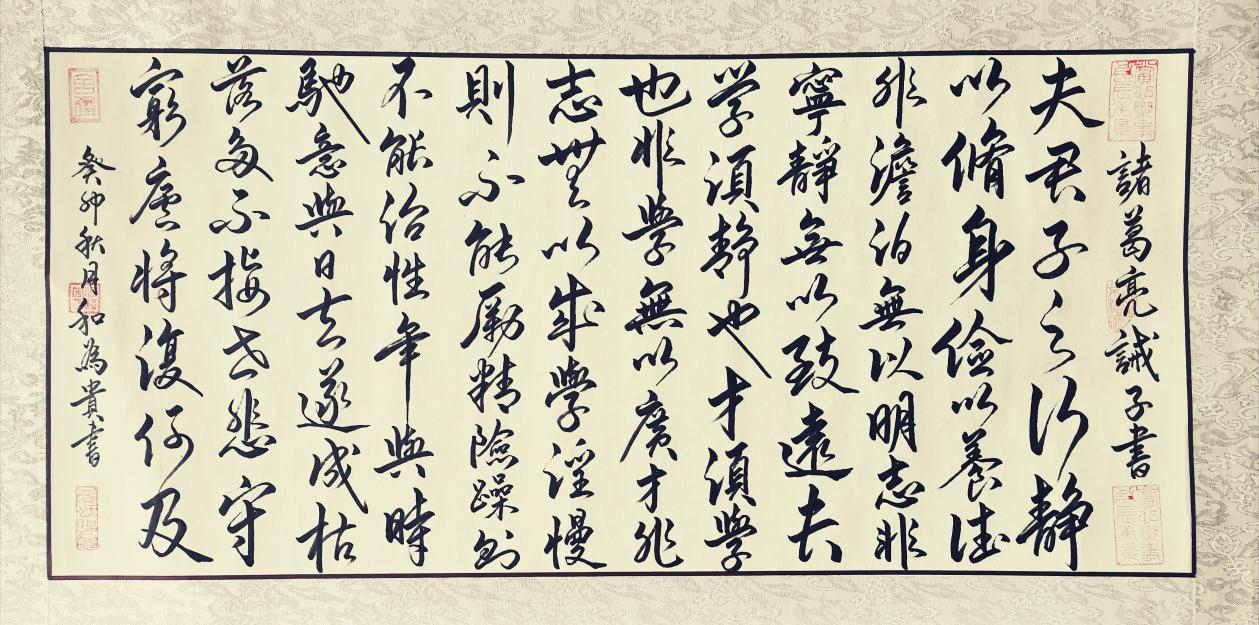 諸葛亮誡子書
夫君子之行静
以脩身儉以養徳
非澹泊無以明志非
寧静無以致遠夫
学須静也才須學
也非學無以廣才非
志無以成學淫慢
則不能勵精險躁則
不能治性年與時
馳意與日去遂成枯
落多不接世悲守
窮廬將復何及
癸卯秋月和為貴書